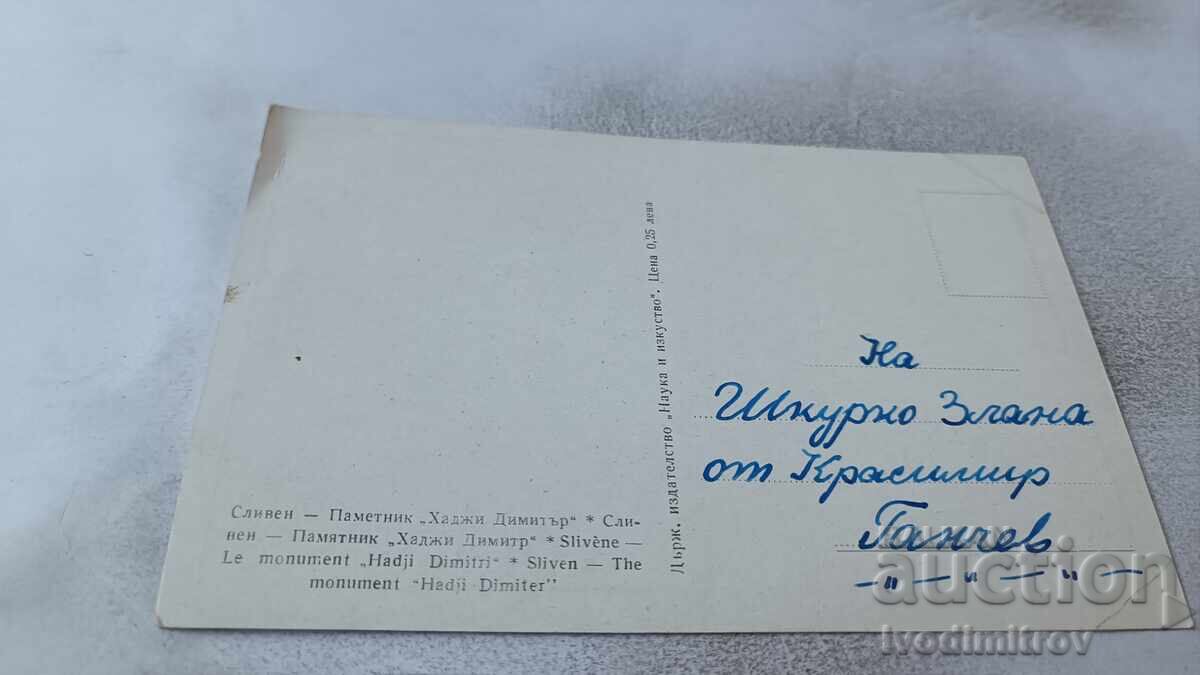 Сливен — Паметник „Хаджи Димитър“ * Сли-
вен — Памятник „Хаджи Димитр“ * Slivène —
Le monument „Hadji Dimitri“ * Sliven — The
monument “Hadji Dimiter”
Държ. издателство „Наука и изкуство“. Цена 0,25 лева
На
Шкурко Злана
от Красимир
Ганчев
— „ — „ — „ —
auction
Ivodimitrov